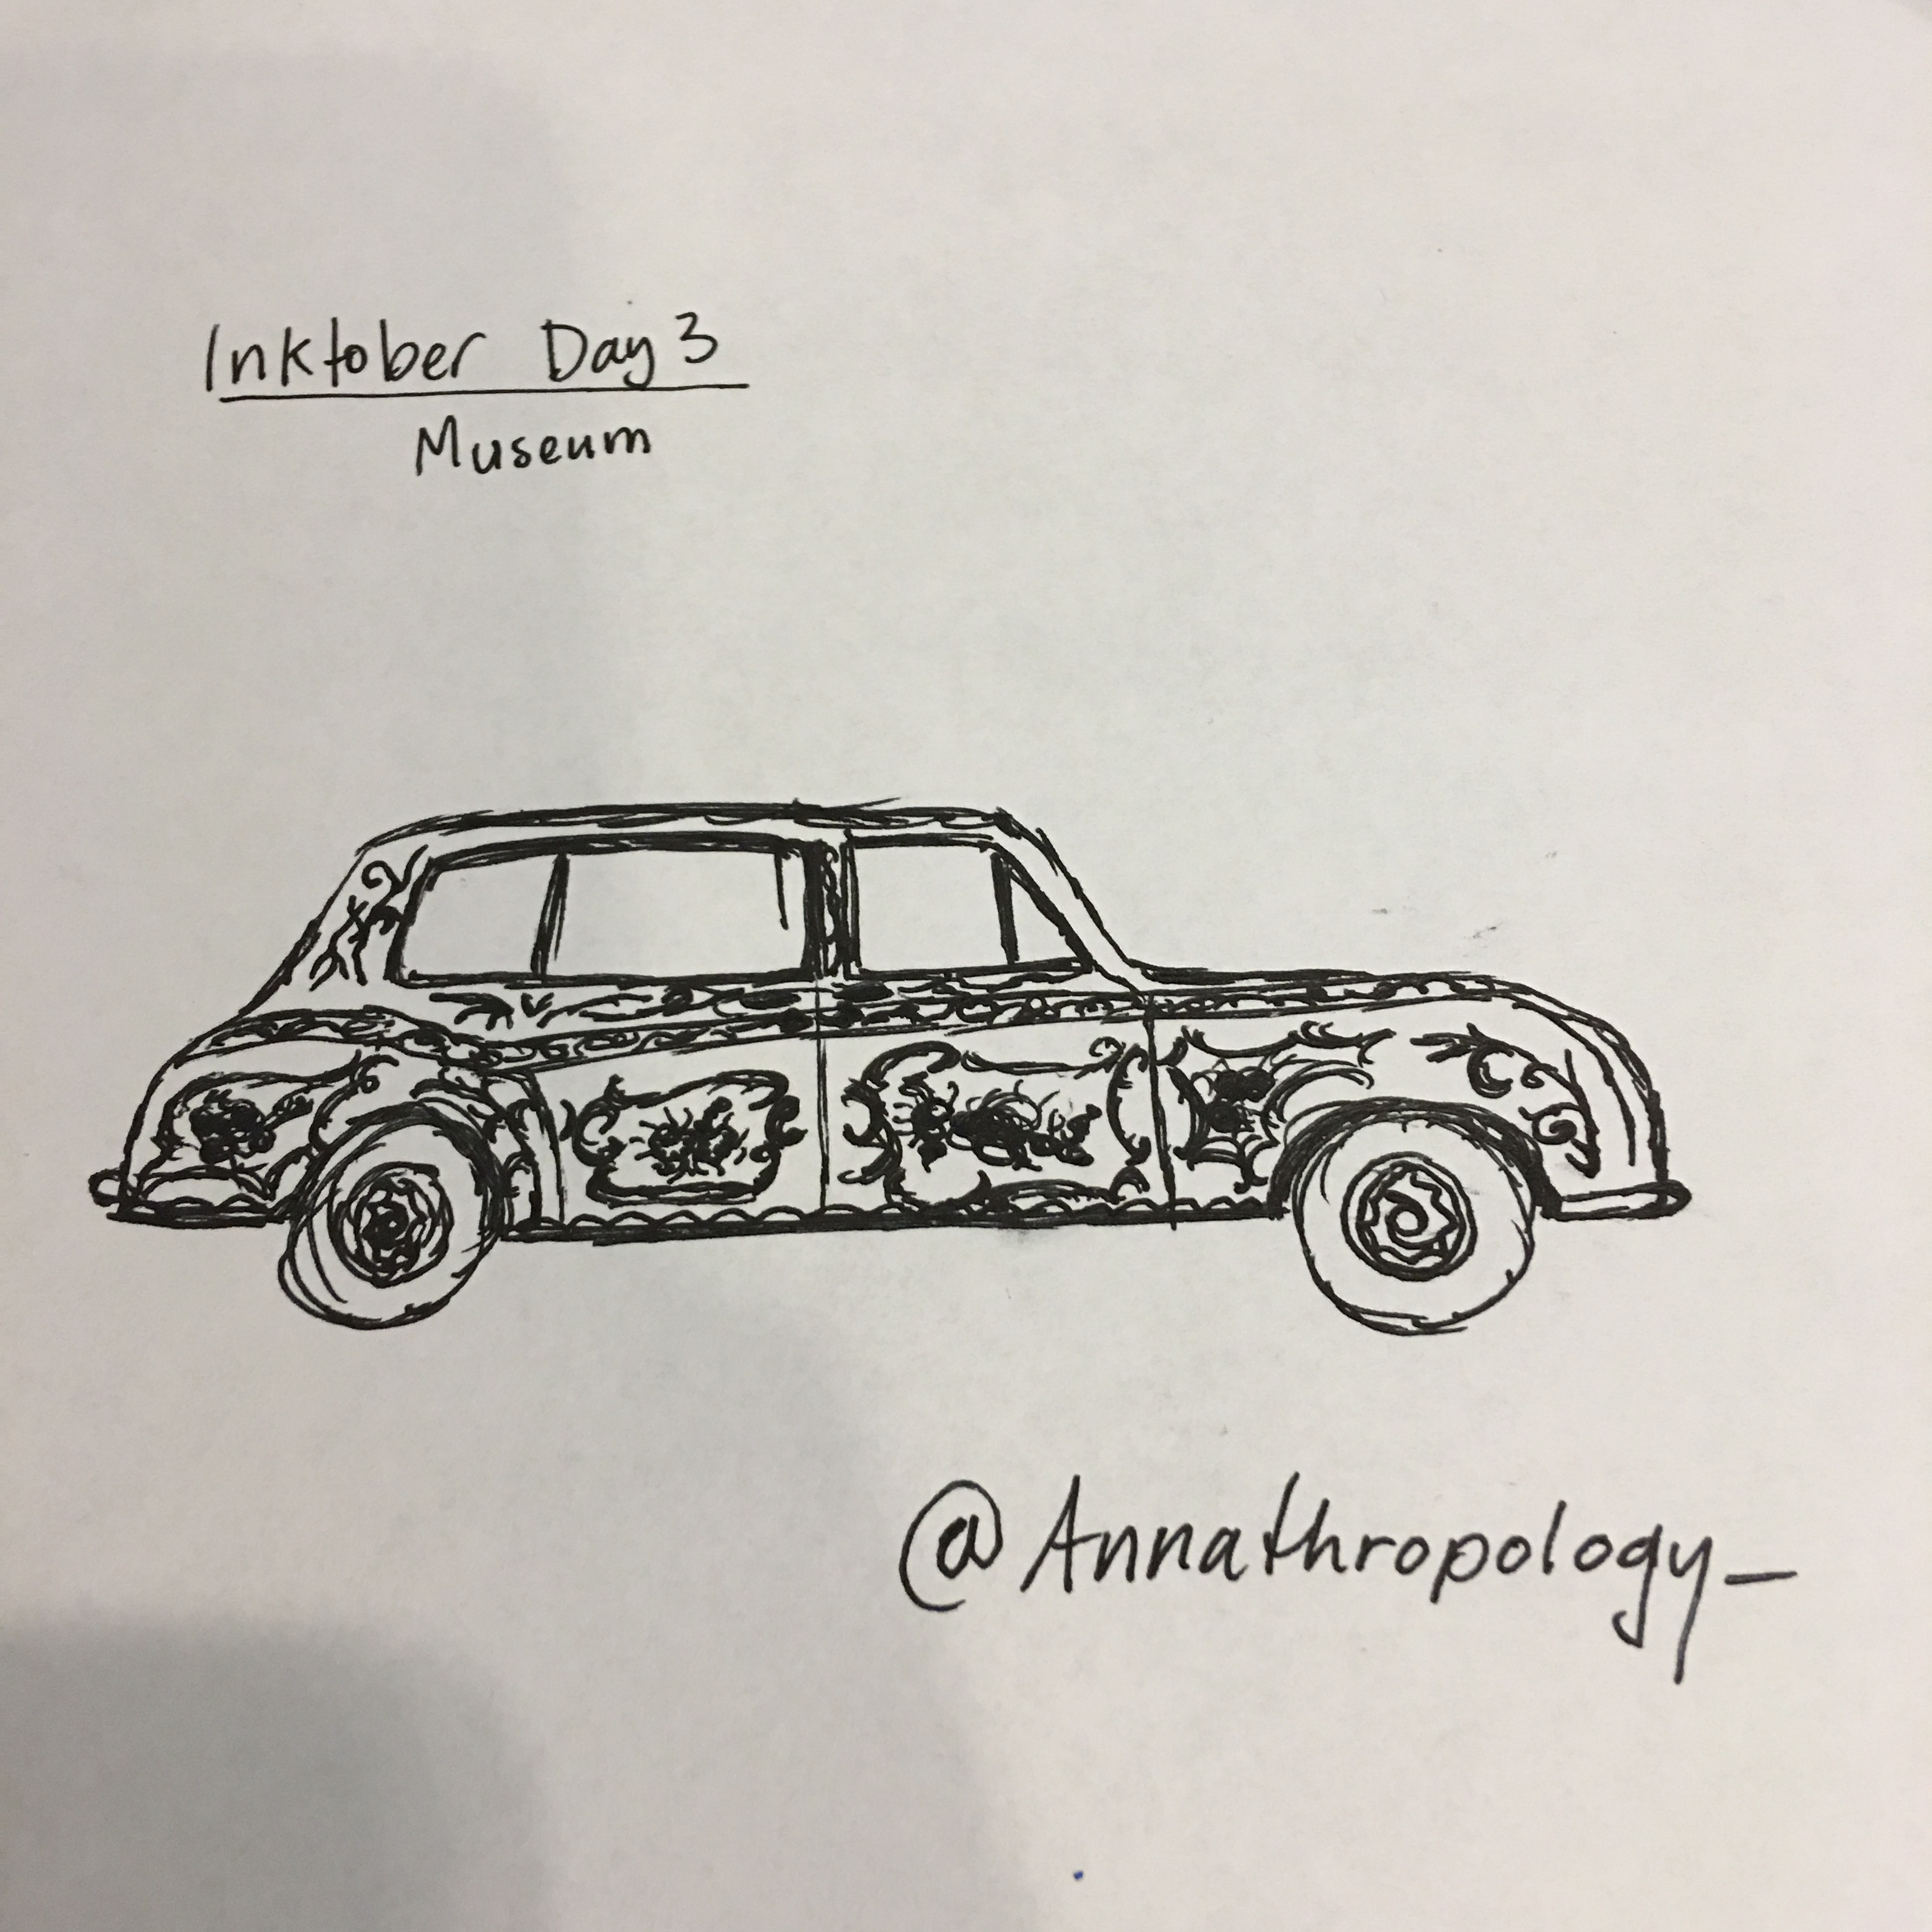 Inktober Day 3
Museum
@Annathropology_